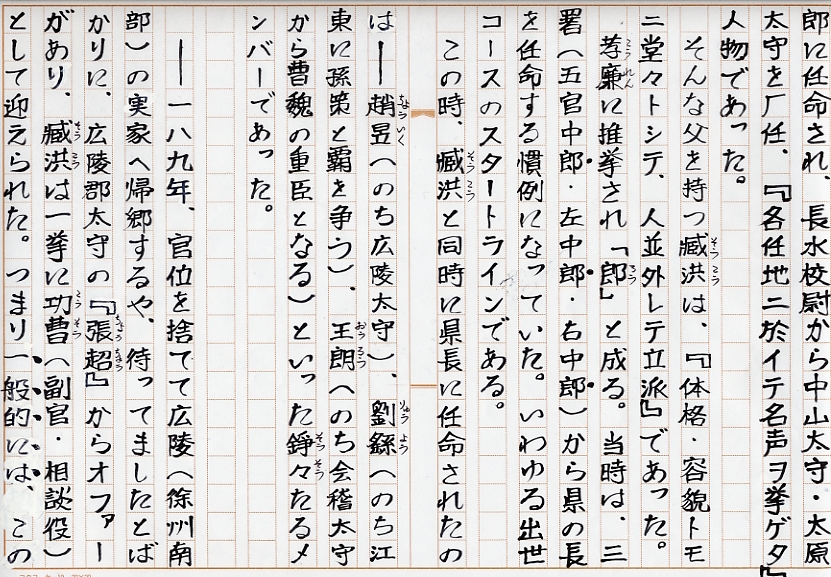 郎に任命され、長水校尉から中山太守・太原
太守を厂任、『各任地ニ於イテ名声ヲ挙ゲタ』
人物であった。
そんな父を持つ臧洪は、『体格・容貌トモ
ニ堂々トシテ、人並外レテ立派』であった。
孝廉に推挙され「郎」と成る。当時は、三
署(五官中郎・左中郎・右中郎)から県の長
を任命する慣例になっていた。いわゆる出世
コースのスタートラインである。
この時、臧洪と同時に県長に任命されたの
は―趙昱(のち広陵太守)、劉繇(のち江
東に孫策と覇を争う)、王朗(のち会稽太守
から曹魏の重臣となる)といった錚々たるメ
ンバーであった。
―一八九年、官位を捨てて広陵(徐州南
部)の実家へ帰郷するや、待ってましたとば
かりに、広陵郡太守の『張超』からオファー
があり、臧洪は一挙に功曹(副官・相談役)
として迎えられた。つまり一般的には、この